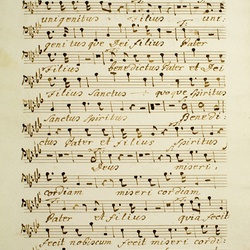 unigenitus Filius uni:
genitusque Dei Filius Pater
Filius benedictus Pater et Dei
Filius Sanctus quoque Spiritus
Sanctus Spiritus Benedi:
ctus Pater et Filius Spiritus
Deus miseri:
cordiam miseri cordiam
Pater et Filius quia fecit
fecit nobiscum fecit miseri cordi: